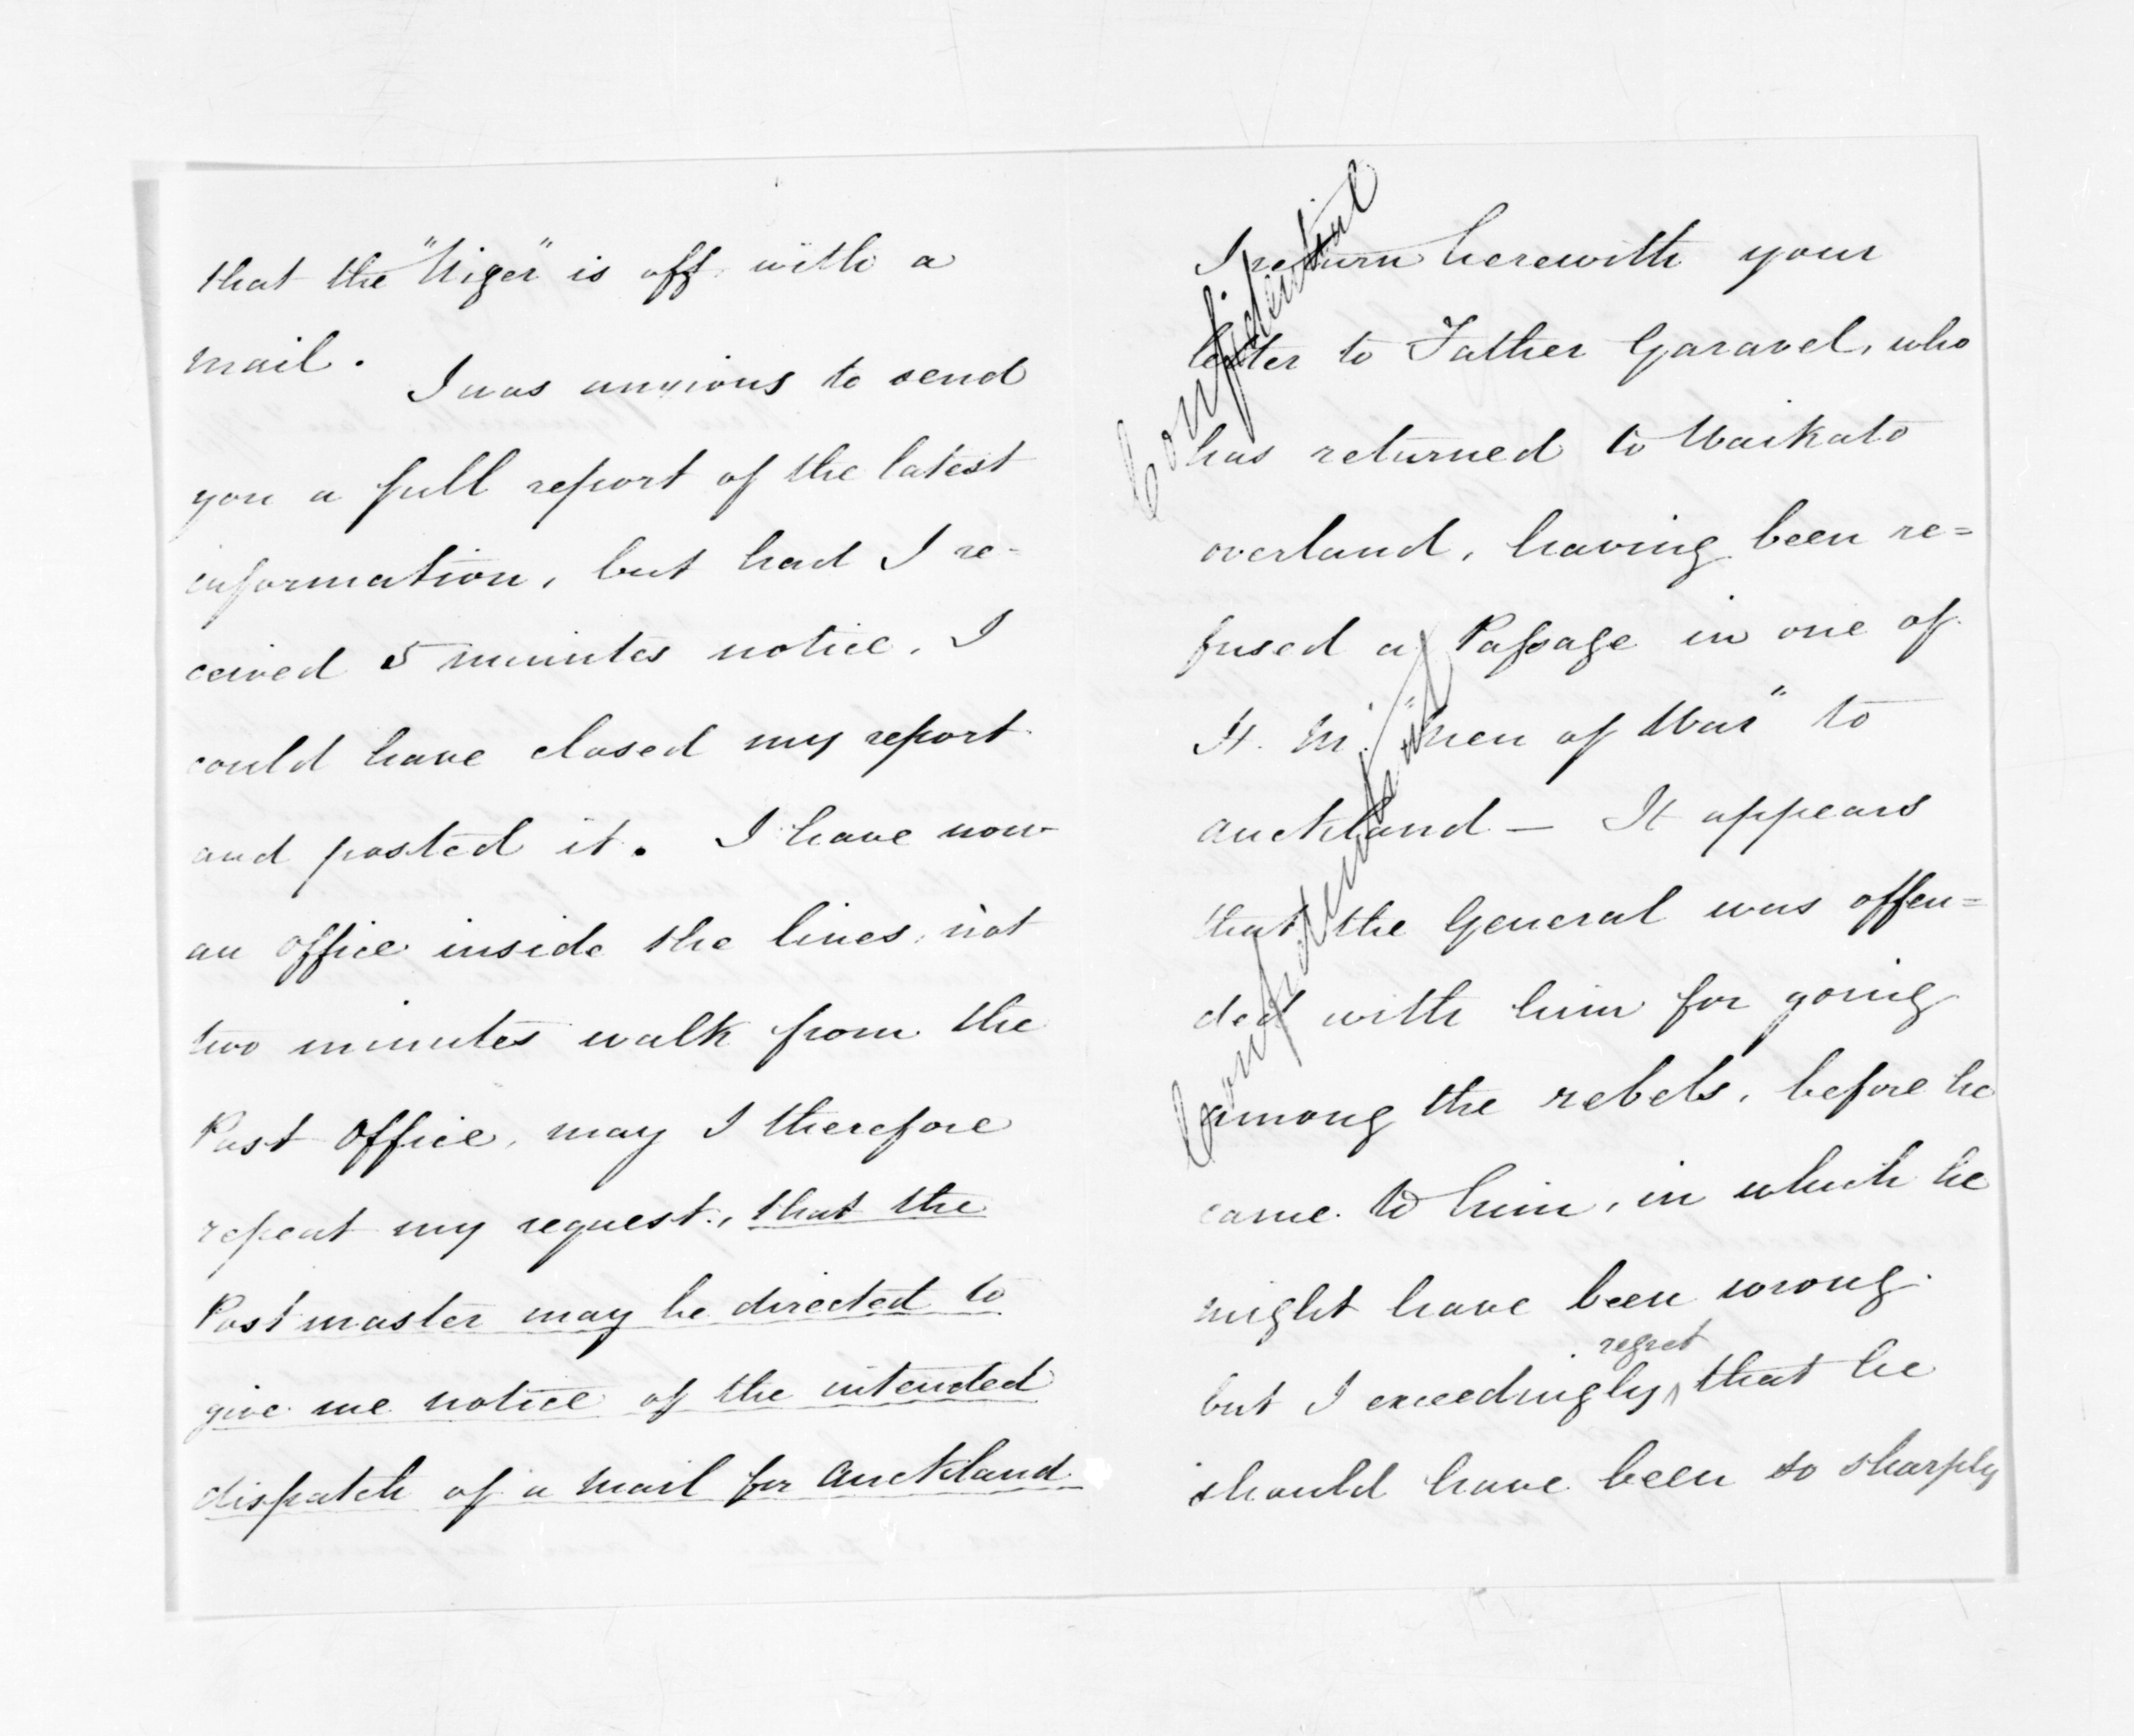 that the "Niger" is off with a
mail.
I was anxious to send
you a full report of the latest
information, but had I re-
ceived 5 minutes notice, I
could have closed my report
and posted it. I have now
an office inside the lines, not
two minutes walk from the
Post Office, may I therefore
repeat my request, that the
Postmaster may be directed to
give me notice of the intended
dispatch of a mail for Auckland
Confidential
I return herewith your
letter to Father Garavel, who
has returned to Waikato
overland, having been re=
fused a Passage in one of
H. M. "Men of War" to
Auckland — It appears
that the General was offen=
ded with him for going
among the rebels, before he
came to him, in which he
might have been wrong.
but I exceedingly regret that he
should have been so sharply
Confidential